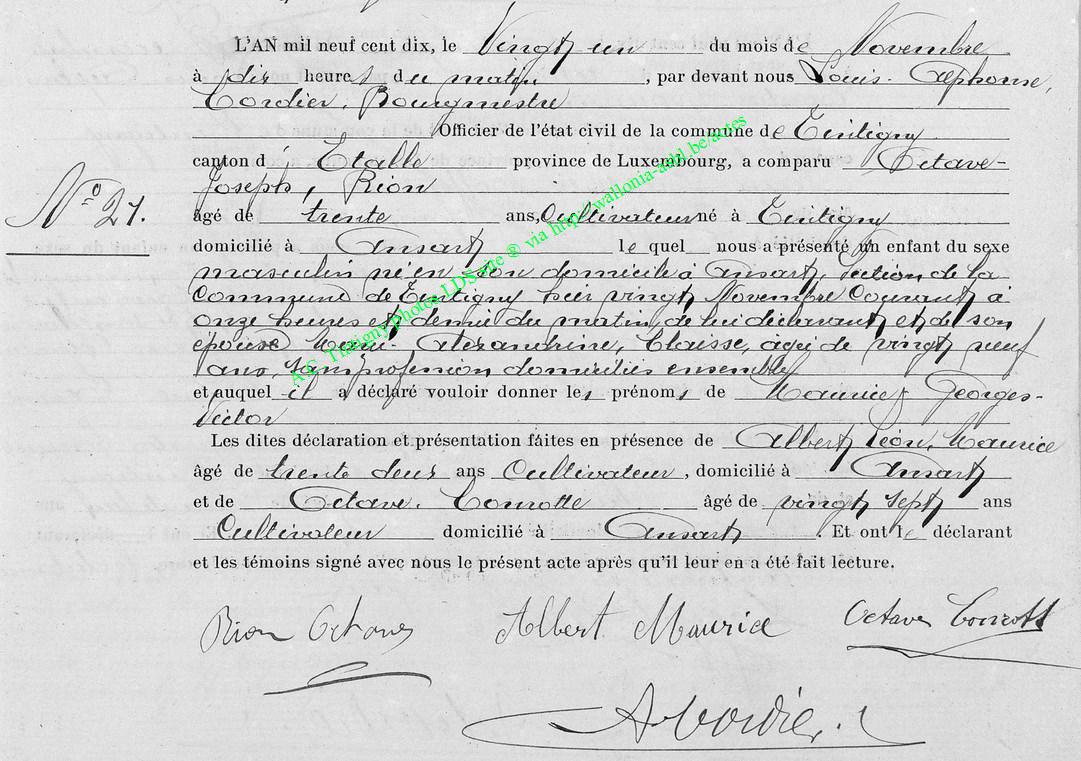 L'AN mil neuf cent dix, le Vingt un du mois de Novembre
à dix heures du matin, par devant nous Louis-Alphonse,
Cordier, Bourgmestre
Officier de l'état civil de la commune de Tintigny
canton d' Etalle province de Luxembourg, a comparu Octave-
Joseph, Rion
N° 21.
âgé de trente ans, Cultivateur né à Tintigny
domicilié à Ansart lequel nous a présenté un enfant du sexe
masculin né en son domicile à Ansart, section de la
Commune de Tintigny hier vingt Novembre Courant à
onze heures et demie du matin, de lui déclarant et de son
épouse Marie-Alexandrine, Claisse, âgée de vingt neuf
ans, sans profession domiciliés ensemble
et auquel il a déclaré vouloir donner les prénoms de Maurice Georges-
Victor
Les dites déclaration et présentation faites en présence de Albert Léon, Maurice
âgé de trente deux ans Cultivateur, domicilié à Ansart
et de Octave, Conrotte âgé de vingt sept ans
Cultivateur domicilié à Ansart. Et ont le déclarant
et les témoins signé avec nous le présent acte après qu'il leur en a été fait lecture.
Rion Octave Albert Maurice Octave Conrott
A Cordier
A.C. Tintigny photos LDS site ® via http://wallonia-asbl.be/actes